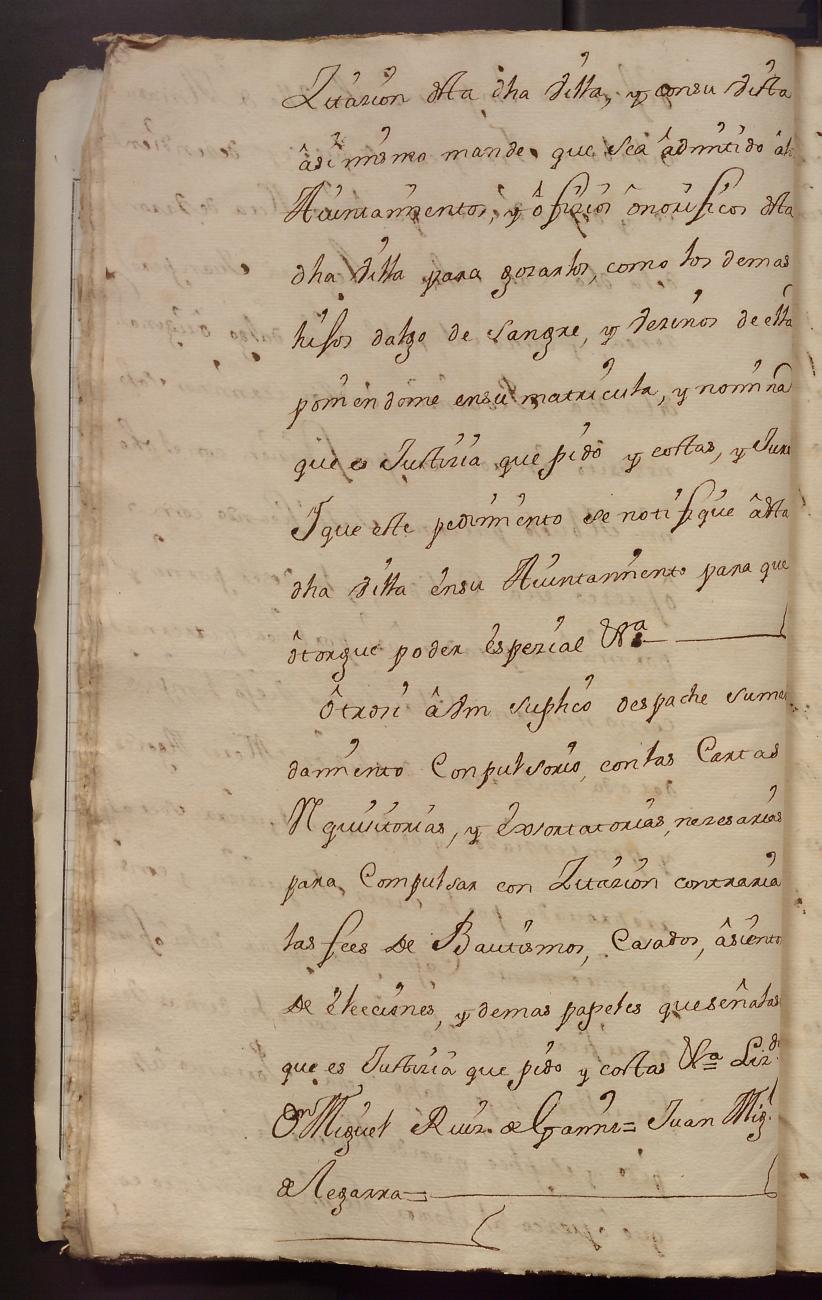 Zitazion desta dha Villa, y con su Vista
âsi mismo mande que sea âdmitido âl
Aiuntamientos, y ôfizios ônorificos desta
dha Villa para gozarlos, como los demas
hijos dalgo de sangre, y Vezinos de ella
poniendome en su matricula, y nomina
que es Justizia que pido y costas, y Juro
Y que este pedimiento se notifique âesta
dha Villa en su Aiuntamiento para que
ôtorgue poder espezial Vª
Ôtrosi âVm suplico despache su man
damiento Compulsorio, con las Cartas
Requisitorias, y êxsortatorias, nezesarias
para Compulsar con Zitazion contraria
las fees de Bautismos, Casados, âsiento
de êlecciones, y demas papeles que señalase
que es Justizia que pido y costas Vª Lizdo
Dn Miguel Ruiz de Gamiz = Juan Migl
de Legarra =